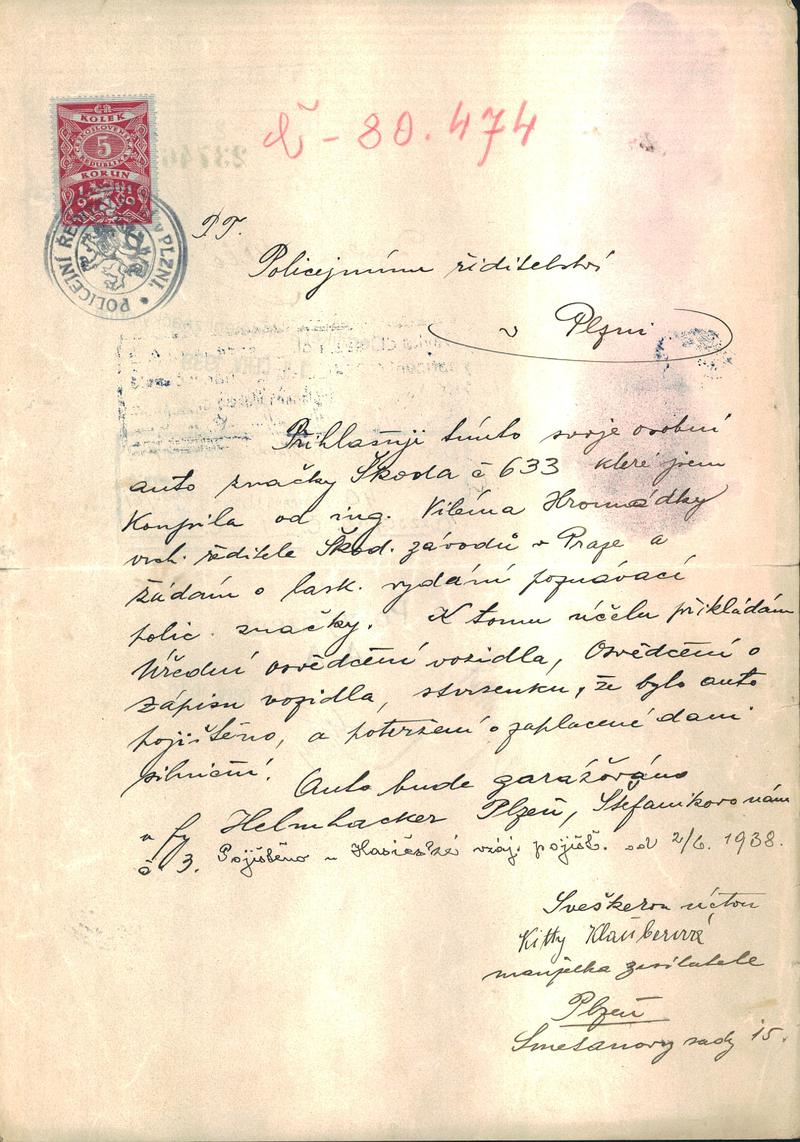 Č - 80.474
KOLEK
5
KORUN
POLICEJNÍ ŘED V PLZNI.
P.T.
Policejnímu řiditelství
v Plzni
Přihlašuji tímto svoje osobní
auto značky Škoda č 633 které jsem
Koupila od ing. Viléma Hromádky
vrch. ředitele Škod. závodů v Praze a
žádám o lask. vydání poznávací
polic. značky. K tomu účelu přikládám
Úřední osvědcéní vozidla, Osvědcéní o
zápisu vozidla, stvrzenku, že bylo auto
pojištěno, a potvrzení o zaplacené dani
silniční. Auto bude garážováno
u fy Helmhacker Plzeň, Štefanikovo nám
č 3. Pojištěno u Hasičské vzáj. pojišť. od 2/6. 1938.
Sveškerou úctou
Kitty Klauberová
manželka zasilatele
Plzeň
Smetanovy sady 15.